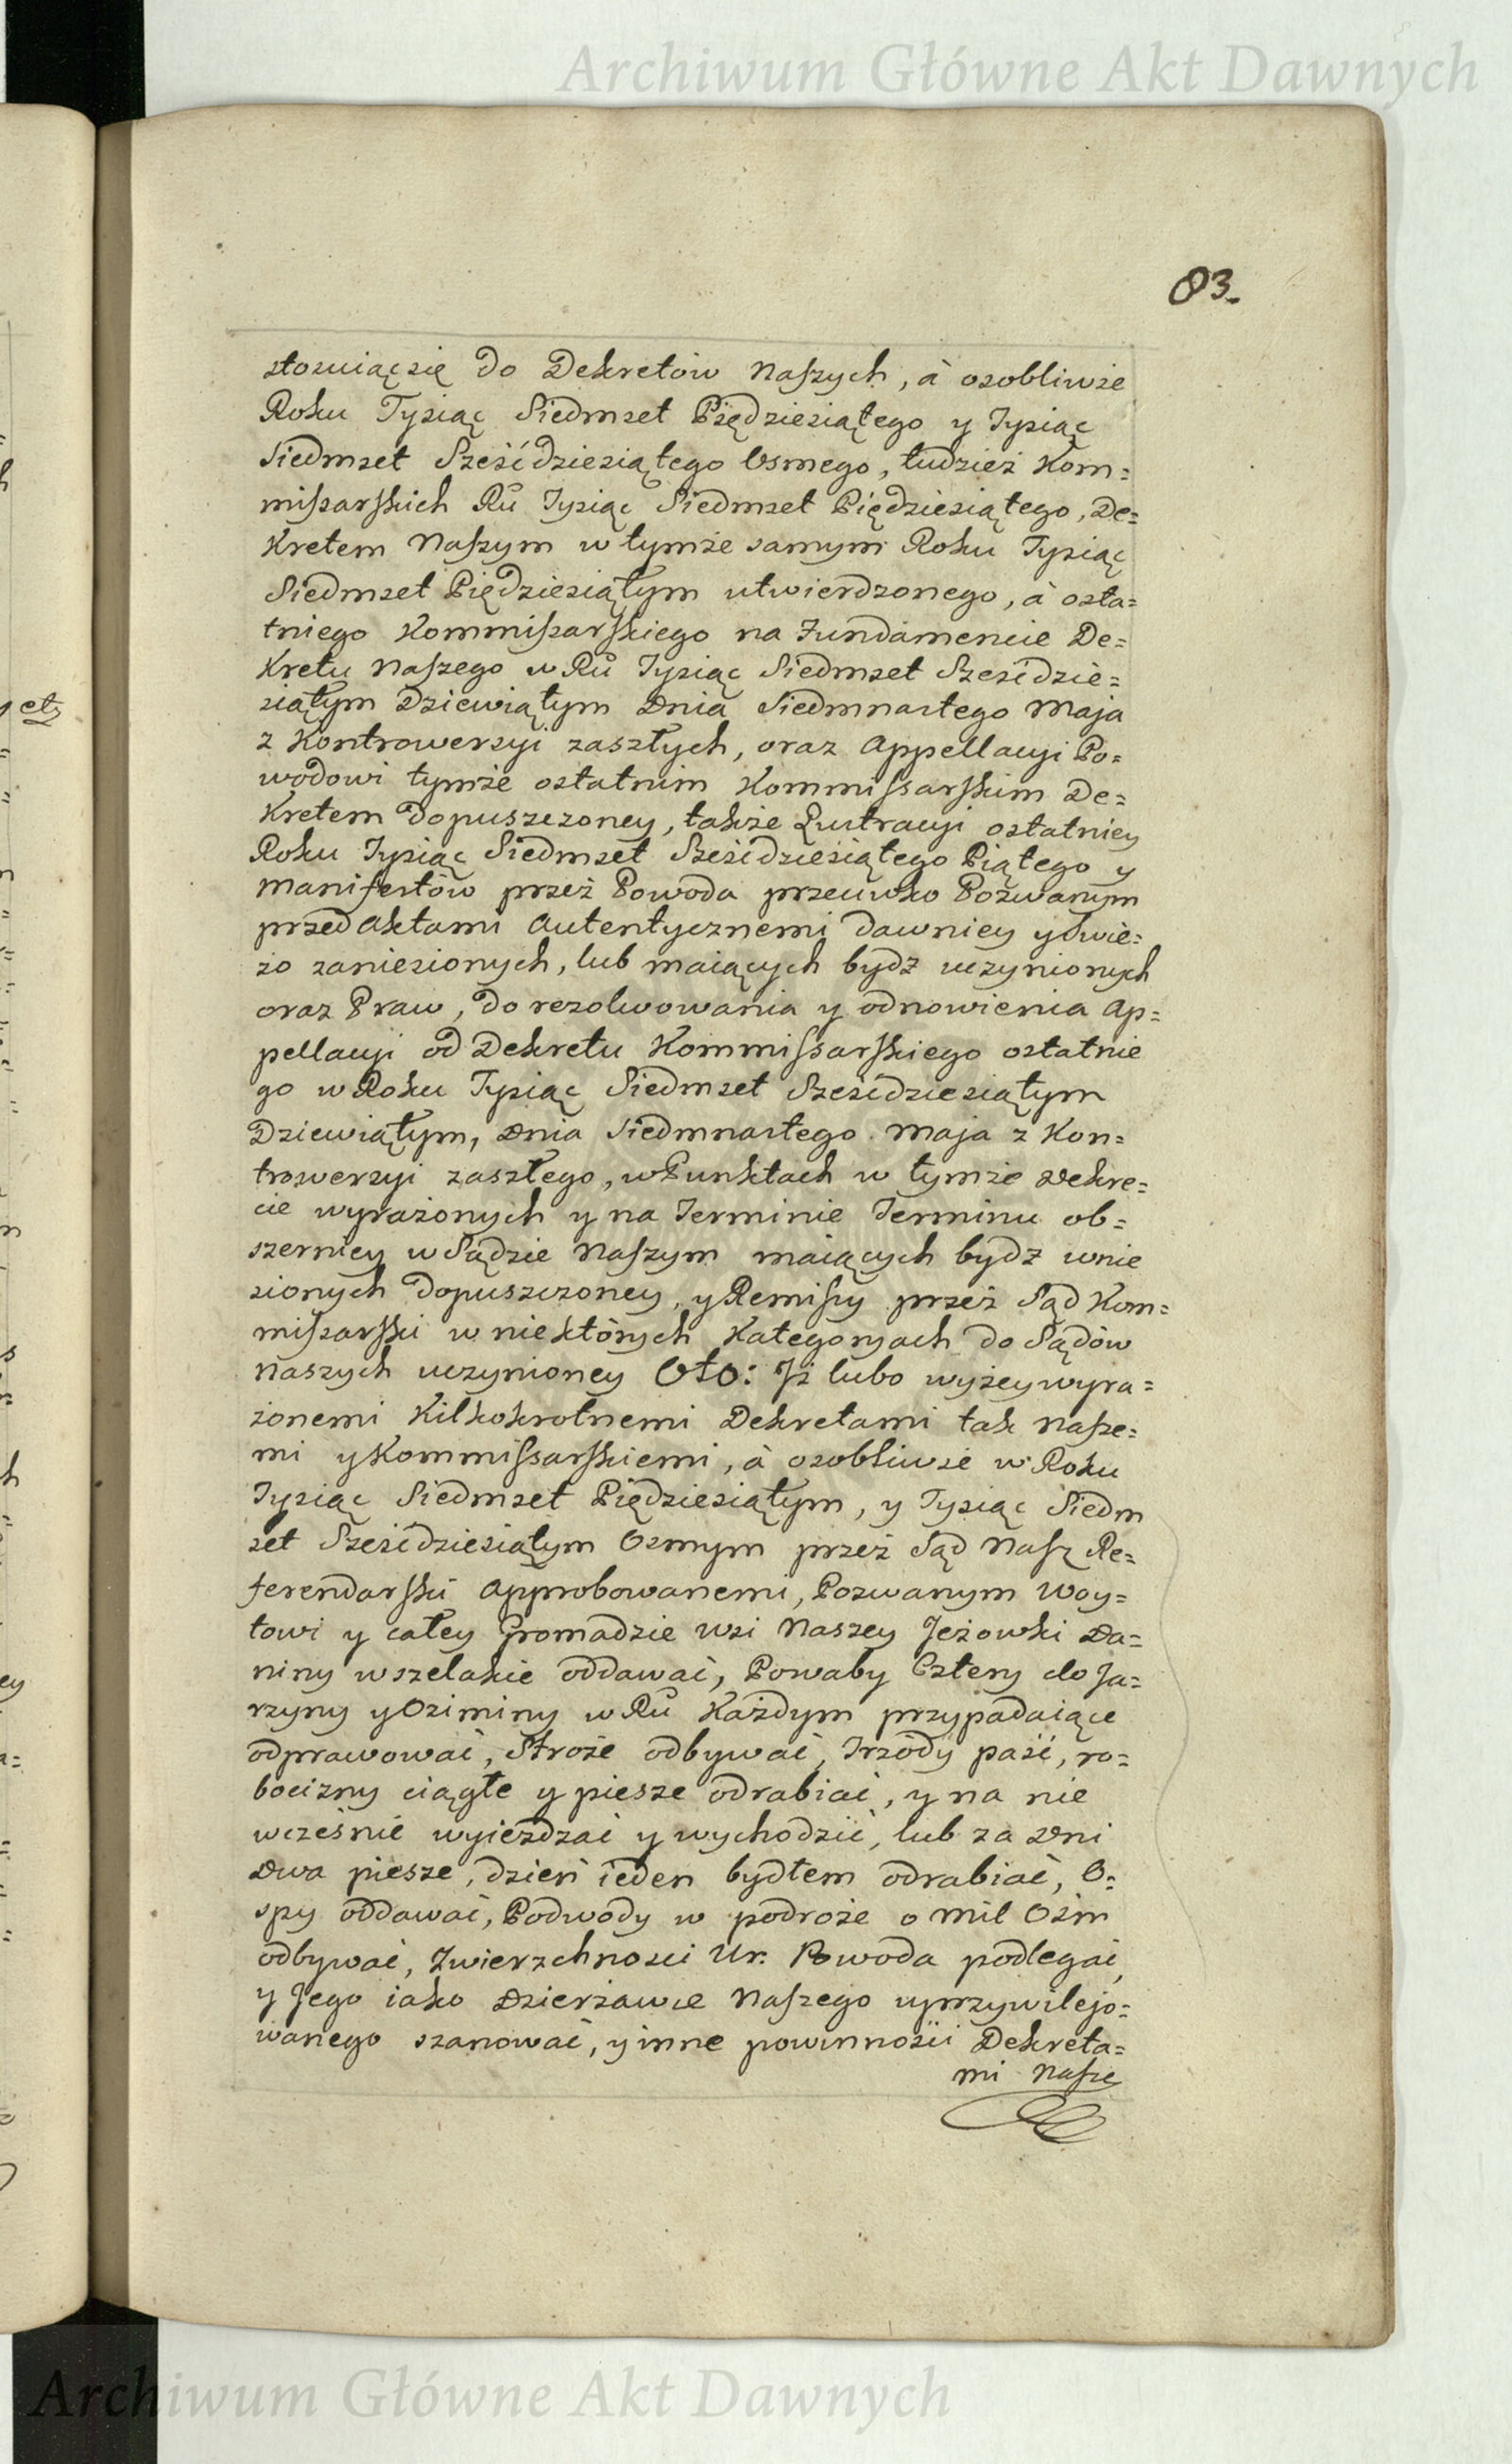 Archiwum Główne Akt Dawnych
83.
stosuiąc się do Dekretów Naszych, à osobliwie
Roku Tysiąc Siedmset Pięędziesiątego y Tysiąc
Siedmset Sześćdziesiątego Osmego, tudzież Kom=
missarskich Rũ Tysiąc Siedmset Piędziesiątego, De=
kretem Naszym w tymże samym Roku Tysiąc
Siedmset Pięedziesiątym utwierdzonego, à osta=
tniego Kommissarskiego na Fundamencie De=
kretu Naszego w Rũ Tysiąc Siedmset Sześćdzie=
siątym Dziewiątym Dnia Siedmnastego Maja
z Kontrowersyi zaszłych, oraz Appellacyi Po=
wodowi tymże ostatnim Kommissarskim De=
kretem dopuszczoney, także Lustracyi ostatniey
Roku Tysiąc Siedmset Sześćdziesiątego Piątego y
Manifestów przez Powoda przeciwko Pozwanym
przed Aktami Autentycznemi dawniey y świe=
żo zaniesionych, lub maiących bydź uczynionych
oraz Praw, do rezolwowania y odnowienia Ap=
pellacyi od Dekretu Kommissarskiego ostatnie
go w Roku Tysiąc Siedmset Sześćdziesiątym
Dziewiątym, Dnia Siedmnastego Maja z Kon=
trowersyi zaszłego, w Punktach w tymże Dekre=
cie wyrażonych y na Terminie Terminu ob=
szerniey w Sądzie Naszym maiących bydź wnie
sionych dopuszczoney, y Remissy przez Sąd Kom=
missarski w niektórych Kategoryach do Sądów
Naszych uczynioney Oto: Iż lubo wyżey wyra=
żonemi Kilkokrotnemi Dekretami tak Nasze=
mi y Kommissarskiemi, à osobliwie w Roku
Tysiąc Siedmset Pięedziesiątym, y Tysiąc Siedm
set Sześćdziesiątym Osmym przez Sąd Nasz Re=
ferendarski Approbowanemi, Pozwanym Woy=
towi y całey Gromadzie wsi Naszey Jeżowki Da=
niny wszelakie oddawać, Powaby Cztery do Ja=
rzyny y Oziminy w Rũ Każdym przypadaiące
odprawować, Stroże odbywać, Trzody paść, ro=
bocizny ciągłe y piesze odrabiać, y na nie
wcześnie wyieżdzać y wychodzić, lub za Dni
Dwa piesze, dzień ieden bydłem odrabiać, O=
spy oddawać, Podwody w podroże o Mil Ośm
odbywać, Zwierzchności Ur. Powoda podlegać,
y Jego iako Dzierżawce Naszego uprzywilejo=
wanego szanować, y inne powinności Dekreta=
mi Nasze
Archiwum Główne Akt Dawnych